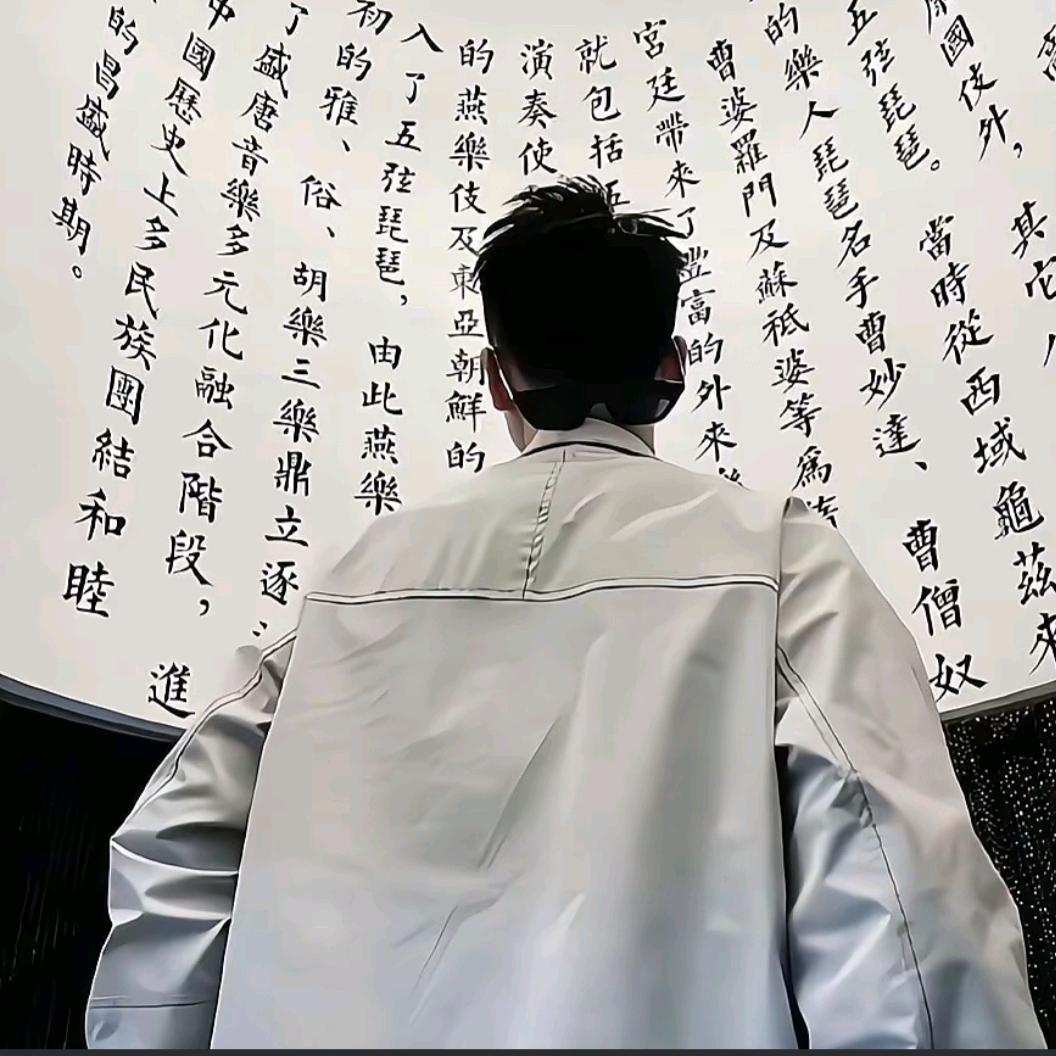 國伎外，其它
五弦琵琶。當時從西域龜茲來
的樂人琵琶名手曹妙達、曹僧奴
曹婆羅門及蘇祗婆等爲
宮廷帶來了豐富的外來
就包括五
演奏使
的燕樂伎及東亞朝鮮的
入了五弦琵琶，由此燕樂
初的雅、俗、胡樂三樂鼎立逐
了盛唐音樂多元化融合階段，進
中國歷史上多民族團結和睦
的昌盛時期。